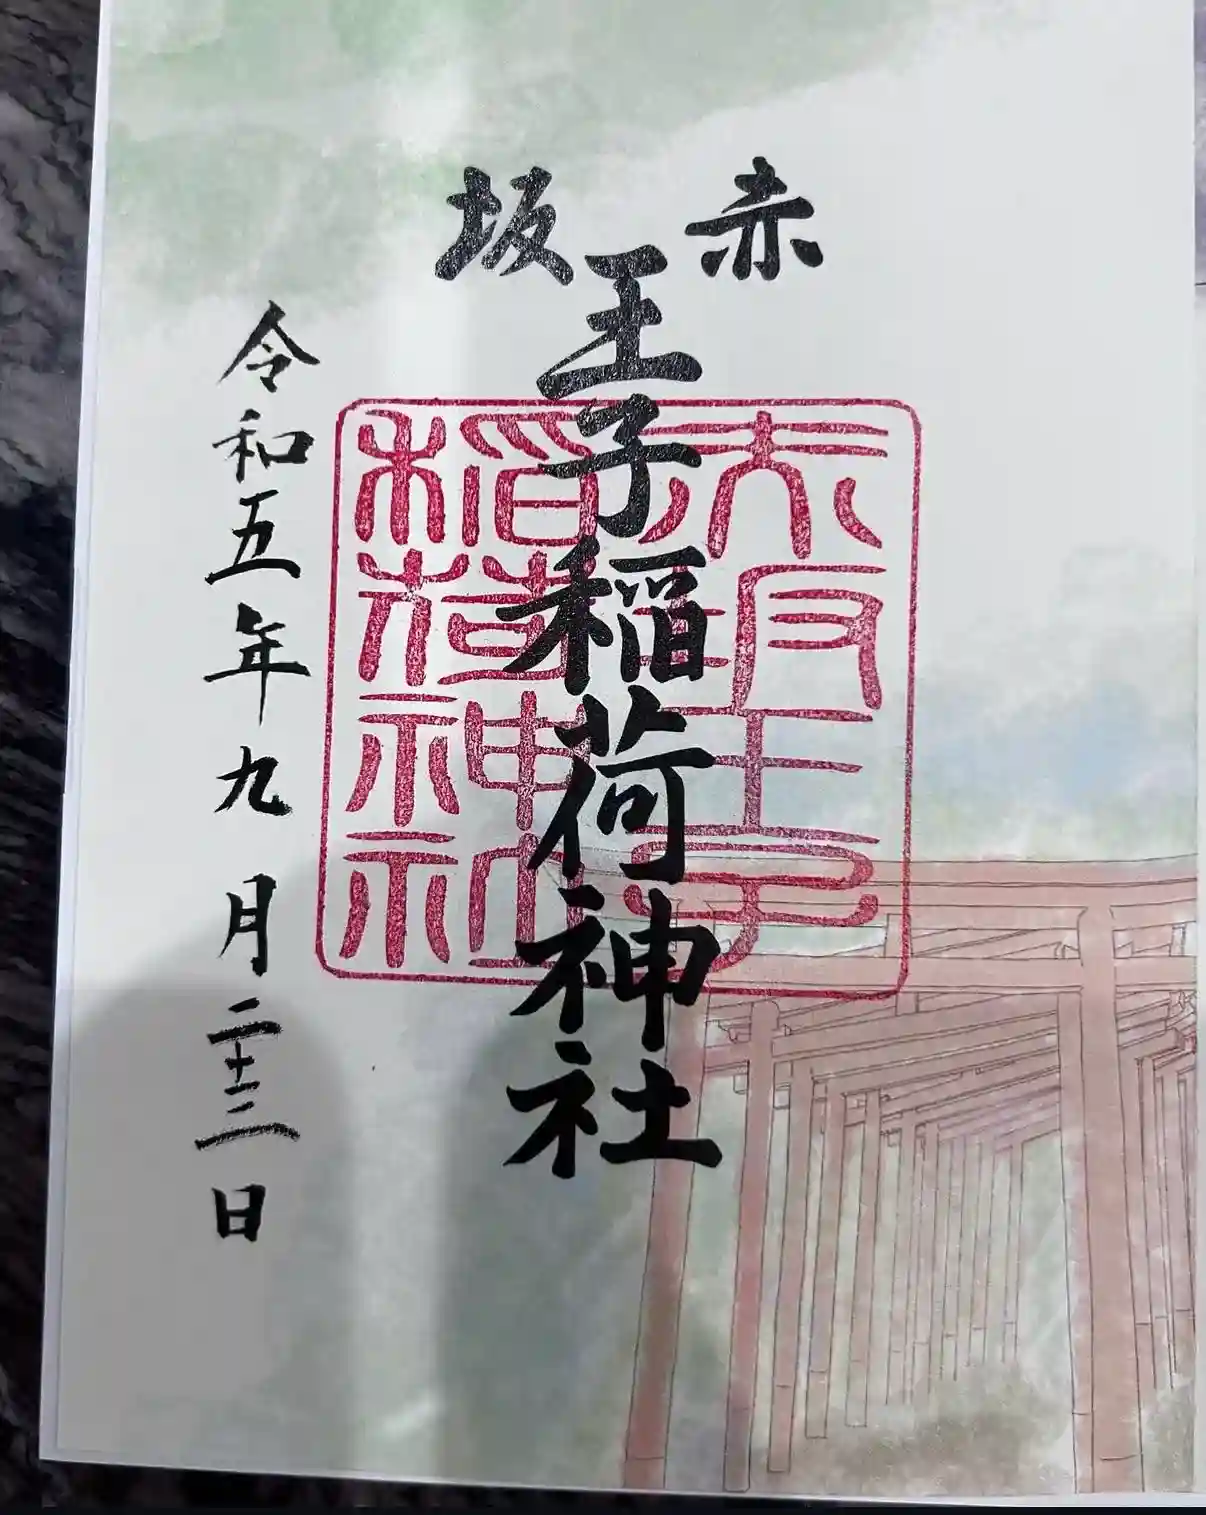 赤坂
王子稲荷神社
赤坂王子
稲荷神社
令和五年九月二十三日